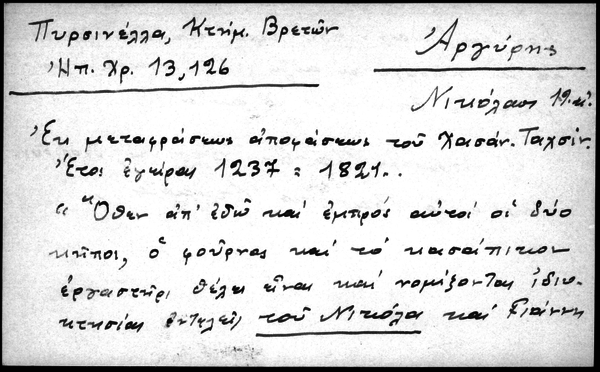 Πυρσινέλλα, Κτήμ. Βρετῶν
Ἠπ. Χρ. 13,126
Ἀργύρης
Νικόλαος 19. αἰ.
Ἐκ μεταφράσεως ἀποφάσεως τοῦ Χασάν. Ταχσίν.
Ἔτος ἐγείρας 1237 = 1821..
« Ὅθεν ἀπ' ἐδῶ καί ἐμπρός αὐτοί οἱ δύο
κῆποι, ὁ φοῦρνος καί τό κασάπικον
ἐργαστῆρι θέλει εἶναι καί νομίζονται ἰδιο-
κτησίαι ἐντελεῖς τοῦ Νικόλα καί Γιάννη